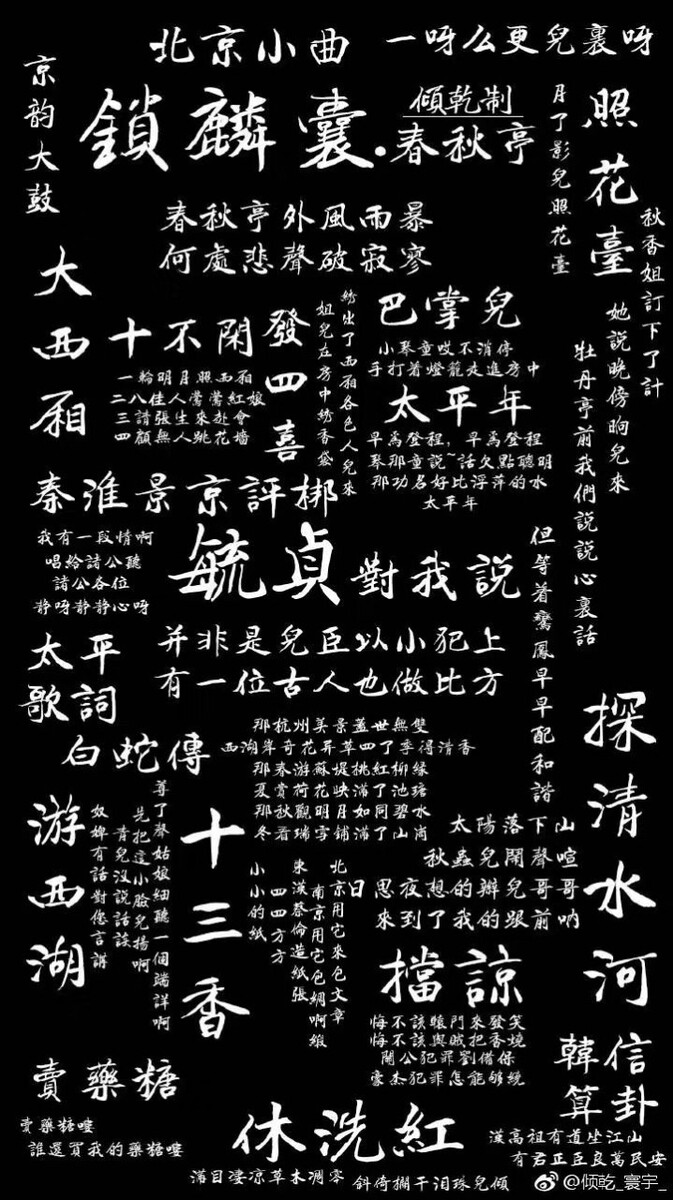 北京小曲
一呀么更兒裏呀
京韵大鼓
鎖麟囊·春秋亭
傾乾制
月了影兒照花臺
照花臺
秋香姐訂下了計
她說晚傍晌兒來
牡丹亭前我們說說心裏話
但等着鸞鳳早早配和諧
春秋亭外風雨暴
何處悲聲破寂寥
大西厢
十不閑
一輪明月照西厢
二八佳人鶯鶯紅娘
三請張生來赴會
四顧無人跳花墙
發四喜
姐兒在房中綉香袋
綉出了西厢各色人兒來
巴掌兒
小琴童哎不消停
手打着燈籠走進房中
太平年
早爲登程,早爲登程
琴那童說~話欠點聰明
那功名好比浮萍的水
太平年
秦淮景京評梆
我有一段情啊
唱給諸公聽
諸公各位
静呀静静心呀
毓貞
對我説
并非是兒臣以小犯上
有一位古人也做比方
太平歌詞
白蛇傳
那杭州美景蓋世無雙
西湖岸奇花异草四了季得清香
那春游蘇堤桃紅柳緑
夏賞荷花映滿了池塘
那秋觀明月如同碧水
冬看瑞雪鋪滿了山崗
探清水河
太陽落下山
秋蟲兒鬧聲喧
日思夜想的辮兒哥哥
來到了我的跟前呐
游西湖
尊了聲姑娘細聽一個端詳啊
先把這小臉兒揚啊
青兒没説話該
奴婢有話對您言講
十三香
小小的紙
四四方方
東漢蔡倫造紙張
南京用它包綢啊緞
北京用它來包文章
擋諒
悔不該轅門來發笑
悔不該與賊把香燒
關公犯罪劉備保
豪杰犯罪怎能够饒
韓信算卦
漢高祖有道坐江山
有君正臣良萬民安
賣藥糖
賣藥糖嘍
誰還買我的藥糖嘍
休洗紅
落目凄凉草木凋零
斜倚擱干泪珠兒傾
@倾乾_寰宇_